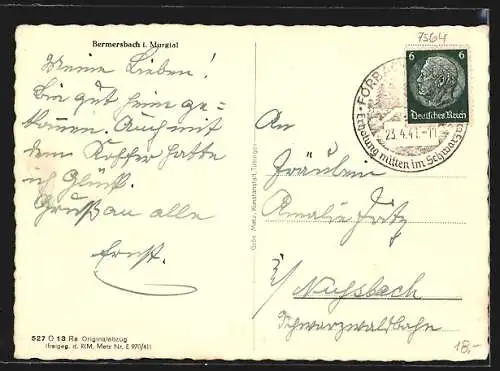 7564
Bermersbach i. Murgtal
Meine Lieben!
Bin gut heim ge-
kommen. Auch mit
dem Koffer hatte
ich Glück.
Gruß an alle
Ernst.
527 O 13 Ra Originalabzug
(freigeg. d. RLM, Metz Nr. E 970/41)
Gebr. Metz, Kunstanstalt, Tübingen
6 6
Deutsches Reich
FORBA
23.4.41.-11
Erholung mitten im Schwarzwald
An
Fräulein
Amalie Fritz
Nußbach
Schwarzwaldbahn
18,-